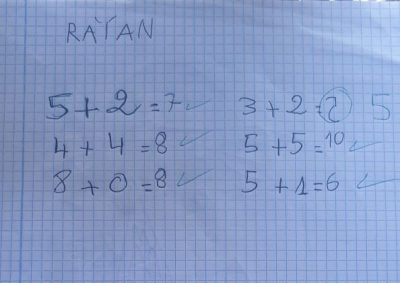 RAYAN
5+2=7 ✓ 3+2=2 5
4+4=8 ✓ 5+5=10 ✓
8+0=8 ✓ 5+1=6 ✓